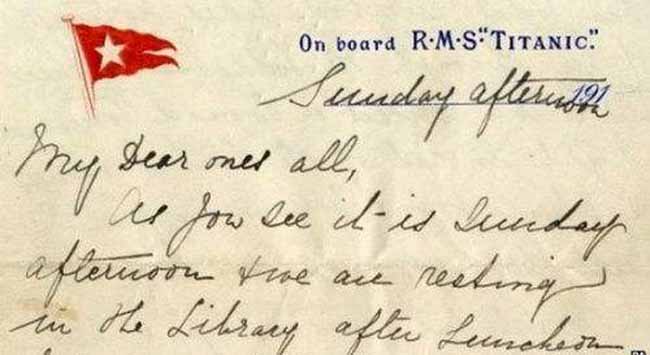 On board R·M·S. "TITANIC."
Sunday afternoon 191
My Dear ones all,
As you see it is Sunday
afternoon & we are resting
in the Library after Luncheon
PA